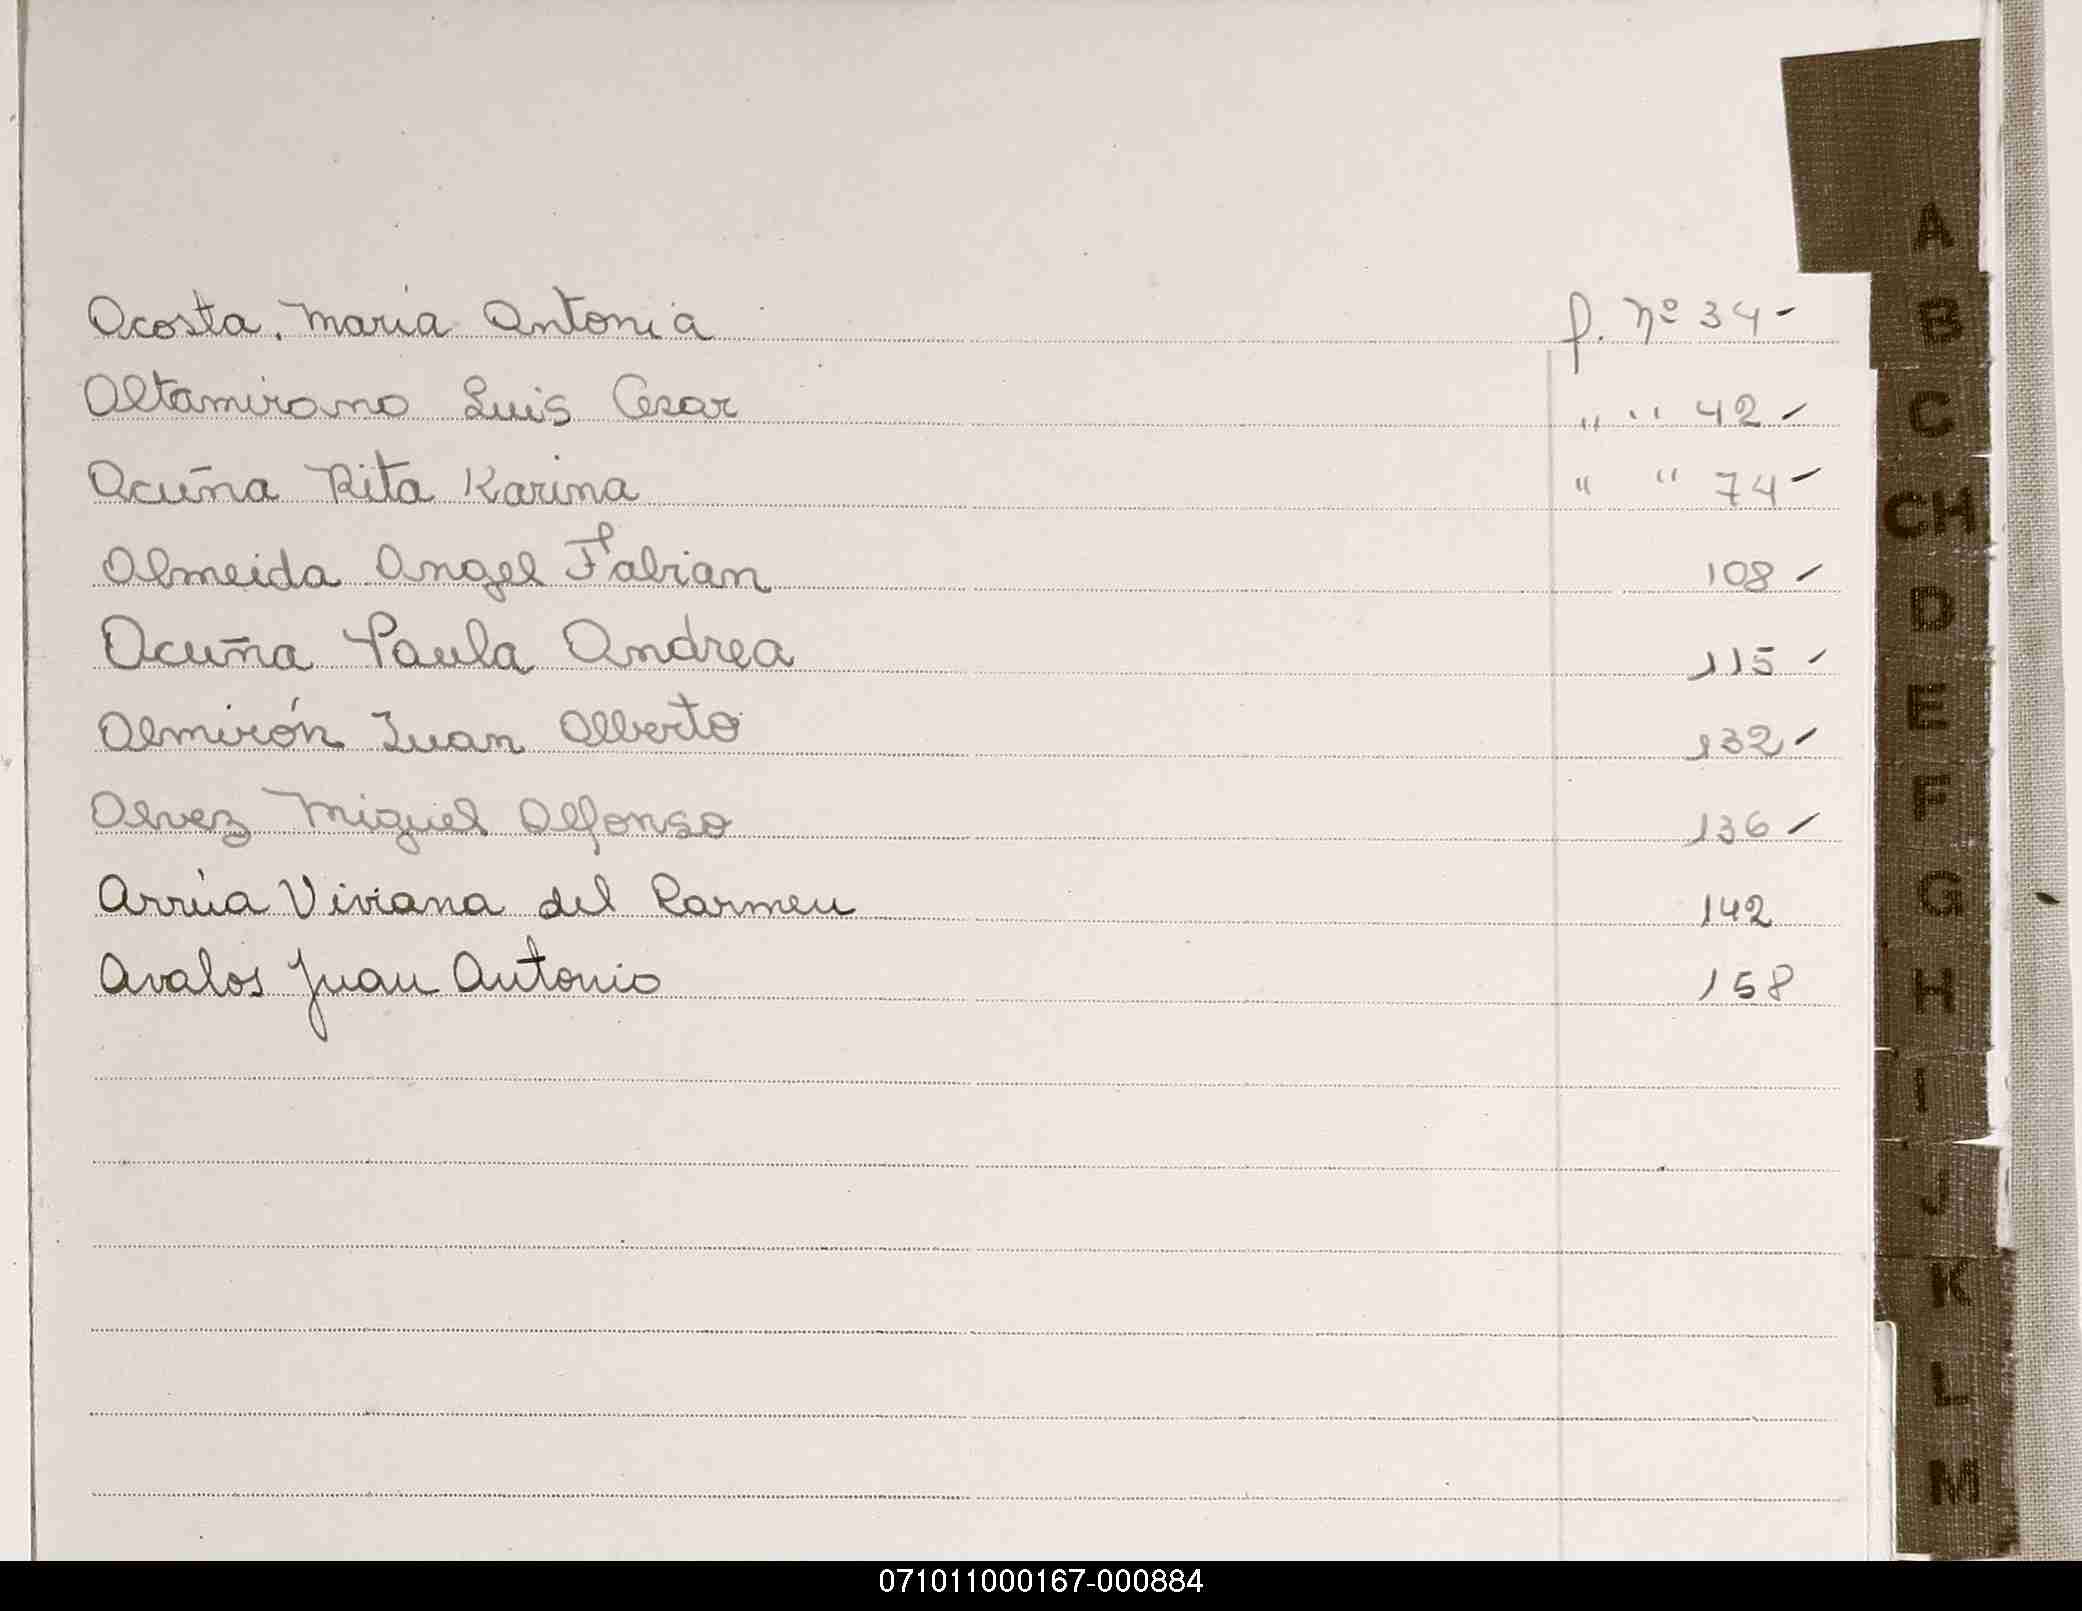 A
Acosta, Maria Antonia f. Nº 34-
B
Altamirano Luis Cesar " " 42-
C
Acuña Rita Karina " " 74-
CH
Almeida Angel Fabian 108-
D
Acuña Paula Andrea 115-
E
Almirón Juan Alberto 132-
F
Alvez Miguel Alfonso 136-
G
Arrúa Viviana del Carmen 142
H
Avalos Juan Antonio 158
I
J
K
L
M
071011000167-000884